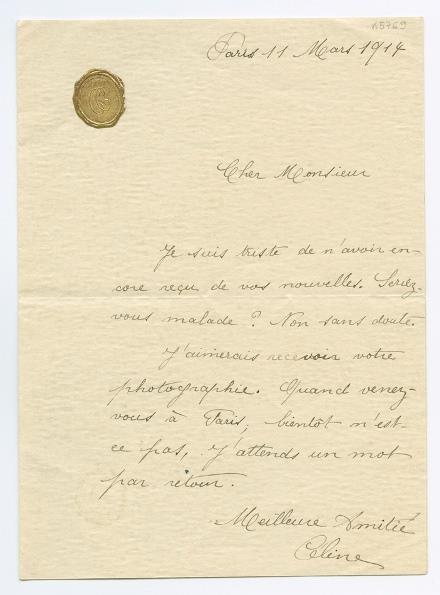 n5769
Paris 11 Mars 1914
Cher Monsieur
Je suis triste de n'avoir en-
core reçu de vos nouvelles. Seriez-
vous malade? Non sans doute.
J'aimerais recevoir votre
photographie. Quand venez-
vous à Paris, bientôt n'est-
ce pas, J'attends un mot
par retour.
Meilleure Amitié
Céline